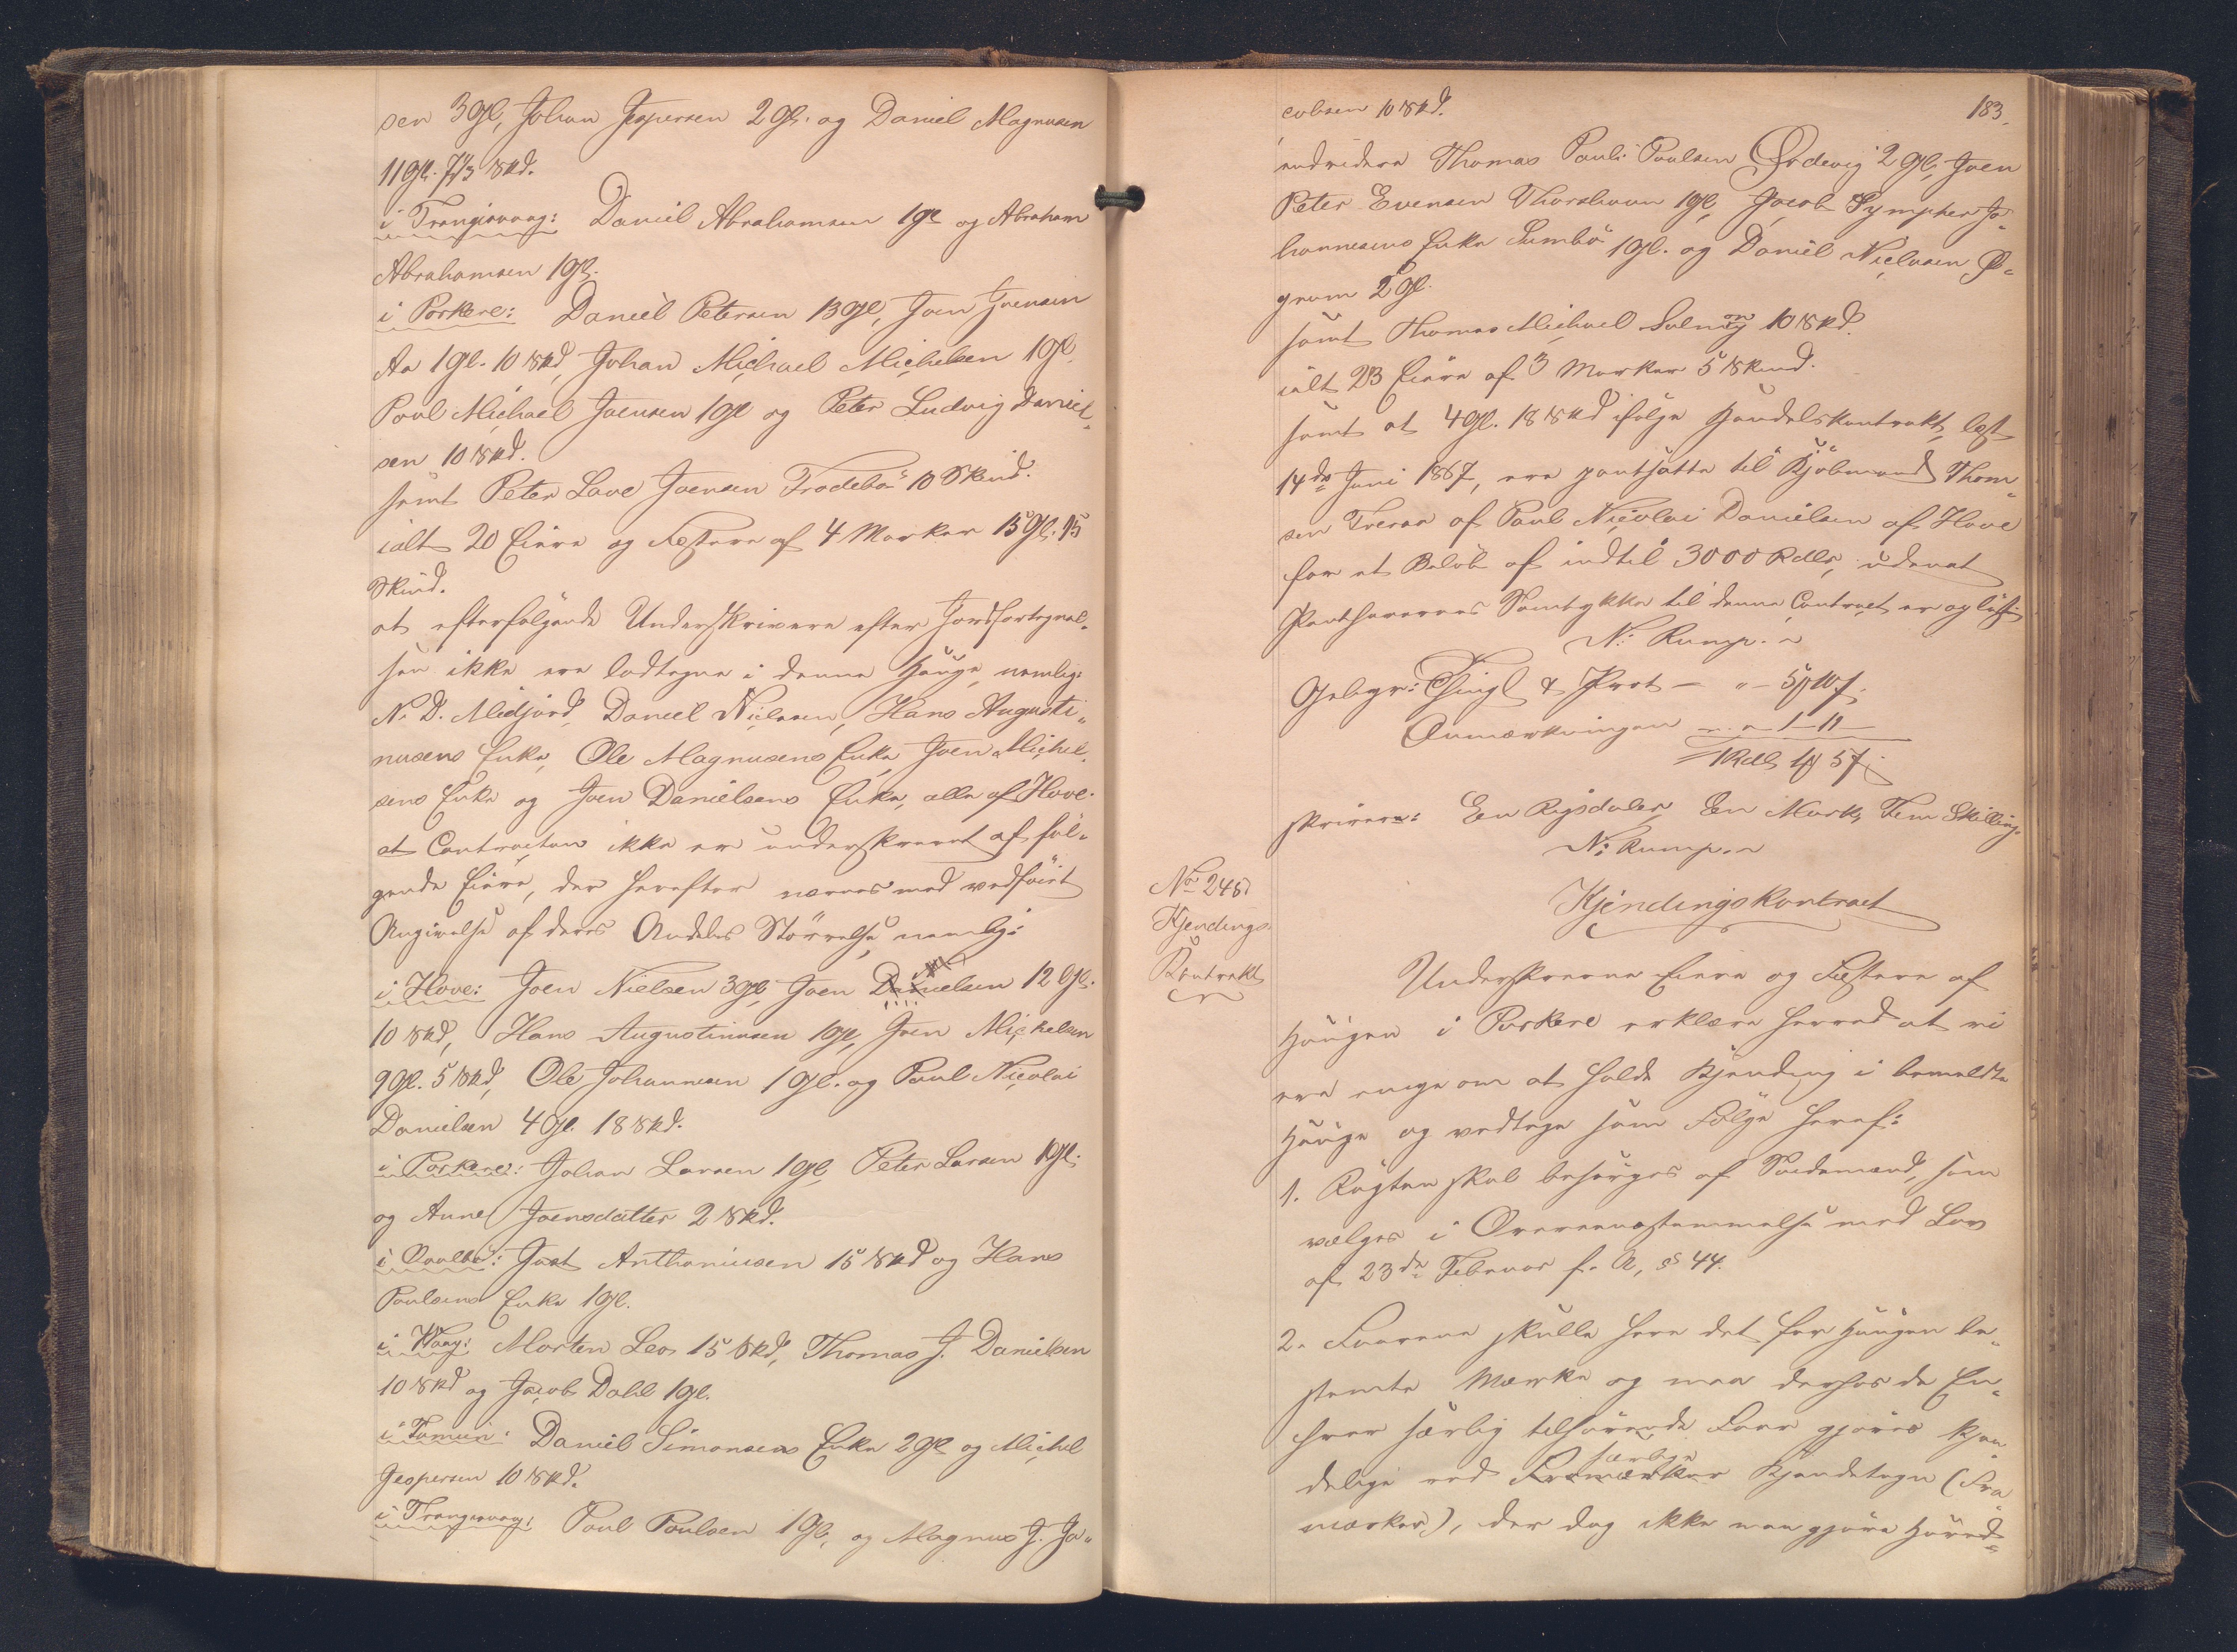 sen 3 Gl, Johan Jespersen 2 Gl. og Daniel Magnusen
11 Gl. 7⅓ Skd.
i Trangisvaag: Daniel Abrahamsen 1 Gl og Abraham
Abrahamsen 1 Gl.
i Porkere: Daniel Petersen 13 Gl, Joen Joensen
Aa 1 Gl. 10 Skd, Johan Michael Michelsen 1 Gl.
Poul Michael Joensen 1 Gl og Peter Ludvig Daniel-
sen 10 Skd.
samt Peter Lave Joensen Frodebö 10 Skind.
ialt 20 Eiere og Fæstere af 4 Marker 15 Gl. 15
Skind.
at efterfølgende Underskrivere efter Jordfortegnel-
sen ikke ere lodtagne i denne Hauge, nemlig:
N. D. Midjord, Daniel Nielsen, Hans Augusti-
nusens Enke, Ole Magnusens Enke, Joen Michel-
sens Enke og Joen Danielsens Enke, alle af Hove.
at Contracten ikke er underskrevet af føl-
gende Eiere, der herefter nævnes med vedføiet
Angivelse af deres Andeles Størrelse, nemlig:
i Hove: Joen Nielsen 3 Gl, Joen Danielsen 12 Gl.
10 Skd, Hans Augustinusen 1 Gl, Joen Michelsen
9 Gl. 5 Skd, Ole Johannesen 1 Gl. og Poul Nicolai
Danielsen 4 Gl. 18 Skd.
i Porkere: Johan Larsen 1 Gl, Peter Larsen 1 Gl.
og Anne Joensdatter 2 Skd.
i Qvalbö: Just Anthoniusen 15 Skd og Hans
Poulsens Enke 1 Gl.
i Waag: Morten Leos 15 Skd, Thomas J. Danielsen
10 Skd og Jacob Dahl 1 Gl.
i Famien: Daniel Simonsens Enke 2 Gl og Michel
Jespersen 10 Skd.
i Trangisvaag: Poul Poulsen 1 Gl, og Magnus J. Ja-
183.
cobsen 10 Skd.
endvidere Thomas Pauli Poulsen Ördevig 2 Gl, Joen
Peter Evensen Thorshavn 1 Gl, Jacob Sympher Jo-
hannesens Enke Sumbö 1 Gl. og Daniel Nielsen Ø-
gram 2 Gl.
samt Thomas Michael 10 Skd.
ialt 23 Eiere af 3 Marker 5 Skind.
samt at 4 Gl. 18 Skd ifølge Handelskontrakt, læst
14de Juni 1867, ere pantsatte til Kjöbmand Thom-
sen Tveraa af Poul Nicolai Danielsen af Hove
for et Beløb af indtil 3000 Rdlr, uden at
Panthaverens Samtykke til denne Contract er oplyst.
N. Rump.
Gebyr: Thingl & Prot — " — 5 ₥ 10 ſ.
Anmærkningen — " — 1 — 11 —
1 Rdl 1 ₥ 5 ſ.
skriver: En Rigsdaler, En Mark, Fem Skilling.
N. Rump.
No 248.
Kjendings
Kontrakt
Kjendingskontract
Underskrevne Eiere og Fæstere af
Haugen i Porkere erklære herved at vi
ere enige om at holde Kjending i bemeldte
Hauge og vedtage som Følge heraf:
1. Røgten skal besørges af Soidemænd, som
vælges i Overeensstemmelse med Lov
af 23de Februar f. A, § 44.
2. Faarene skulle have det for Haugen be-
stemte Mærke og maa derhos de En-
hver særlig tilhørende Faar gjøres kjen-
delige ved Framærker særlige Kjendetegn (Fra
mærker), der dog ikke maa gjøre Hoved-